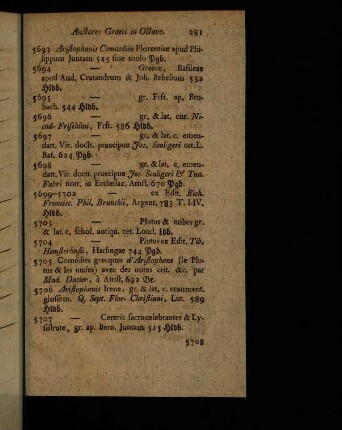 Auctores Graeci in Octavo. 281
5693 Aristophanis Comoediae Florentiae apud Phi-
lippum Juntam 515 sine titulo Pgb.
5694 — Graece, Basileae
apud And. Cratandrum & Joh. Bebelium 532
Hldb.
5695 — gr. Frft. ap. Bru-
bach. 544 Hldb.
5696 — gr. & lat. cur. Ni-
cod. Frischlini, Frft. 586 Hldb.
5697 — gr. & lat. c. emen-
datt. Vir. doctt. praecipue Jos. Scaligeri etc. L.
Bat. 624 Pgb.
5698 — gr. & lat. c. emen-
datt. Vir. doctt. praecipue Jos. Scaligeri & Tan.
Fabri nott. in Ecclesiaz. Amst. 670 Pgb.
5699-5702 — ex Edit. Rich.
Francisc. Phil. Brunckii, Argent. 783 T. I-IV.
Hldb.
5703 — Plutus & nubes gr.
& lat. c. schol. antiqu. etc. Lond. Ldb.
5704 — Plutus ex Edit. Tib.
Hemsterhusii, Harlingae 744 Pgb.
5705 Comédies grecques d'Aristophane (le Plu-
tus & les nuées) avec des notes crit. &c. par
Mad. Dacier, à Amst. 692
5706 Aristophanis Irene, gr. & lat. c. comment.
glossem. Q. Sept. Flor. Christiani, Lut. 589
Hldb.
5707 — Cereris sacra celebrantes & Ly-
sistrate, gr. ap. Bern. Juntam 515 Hldb.
5708